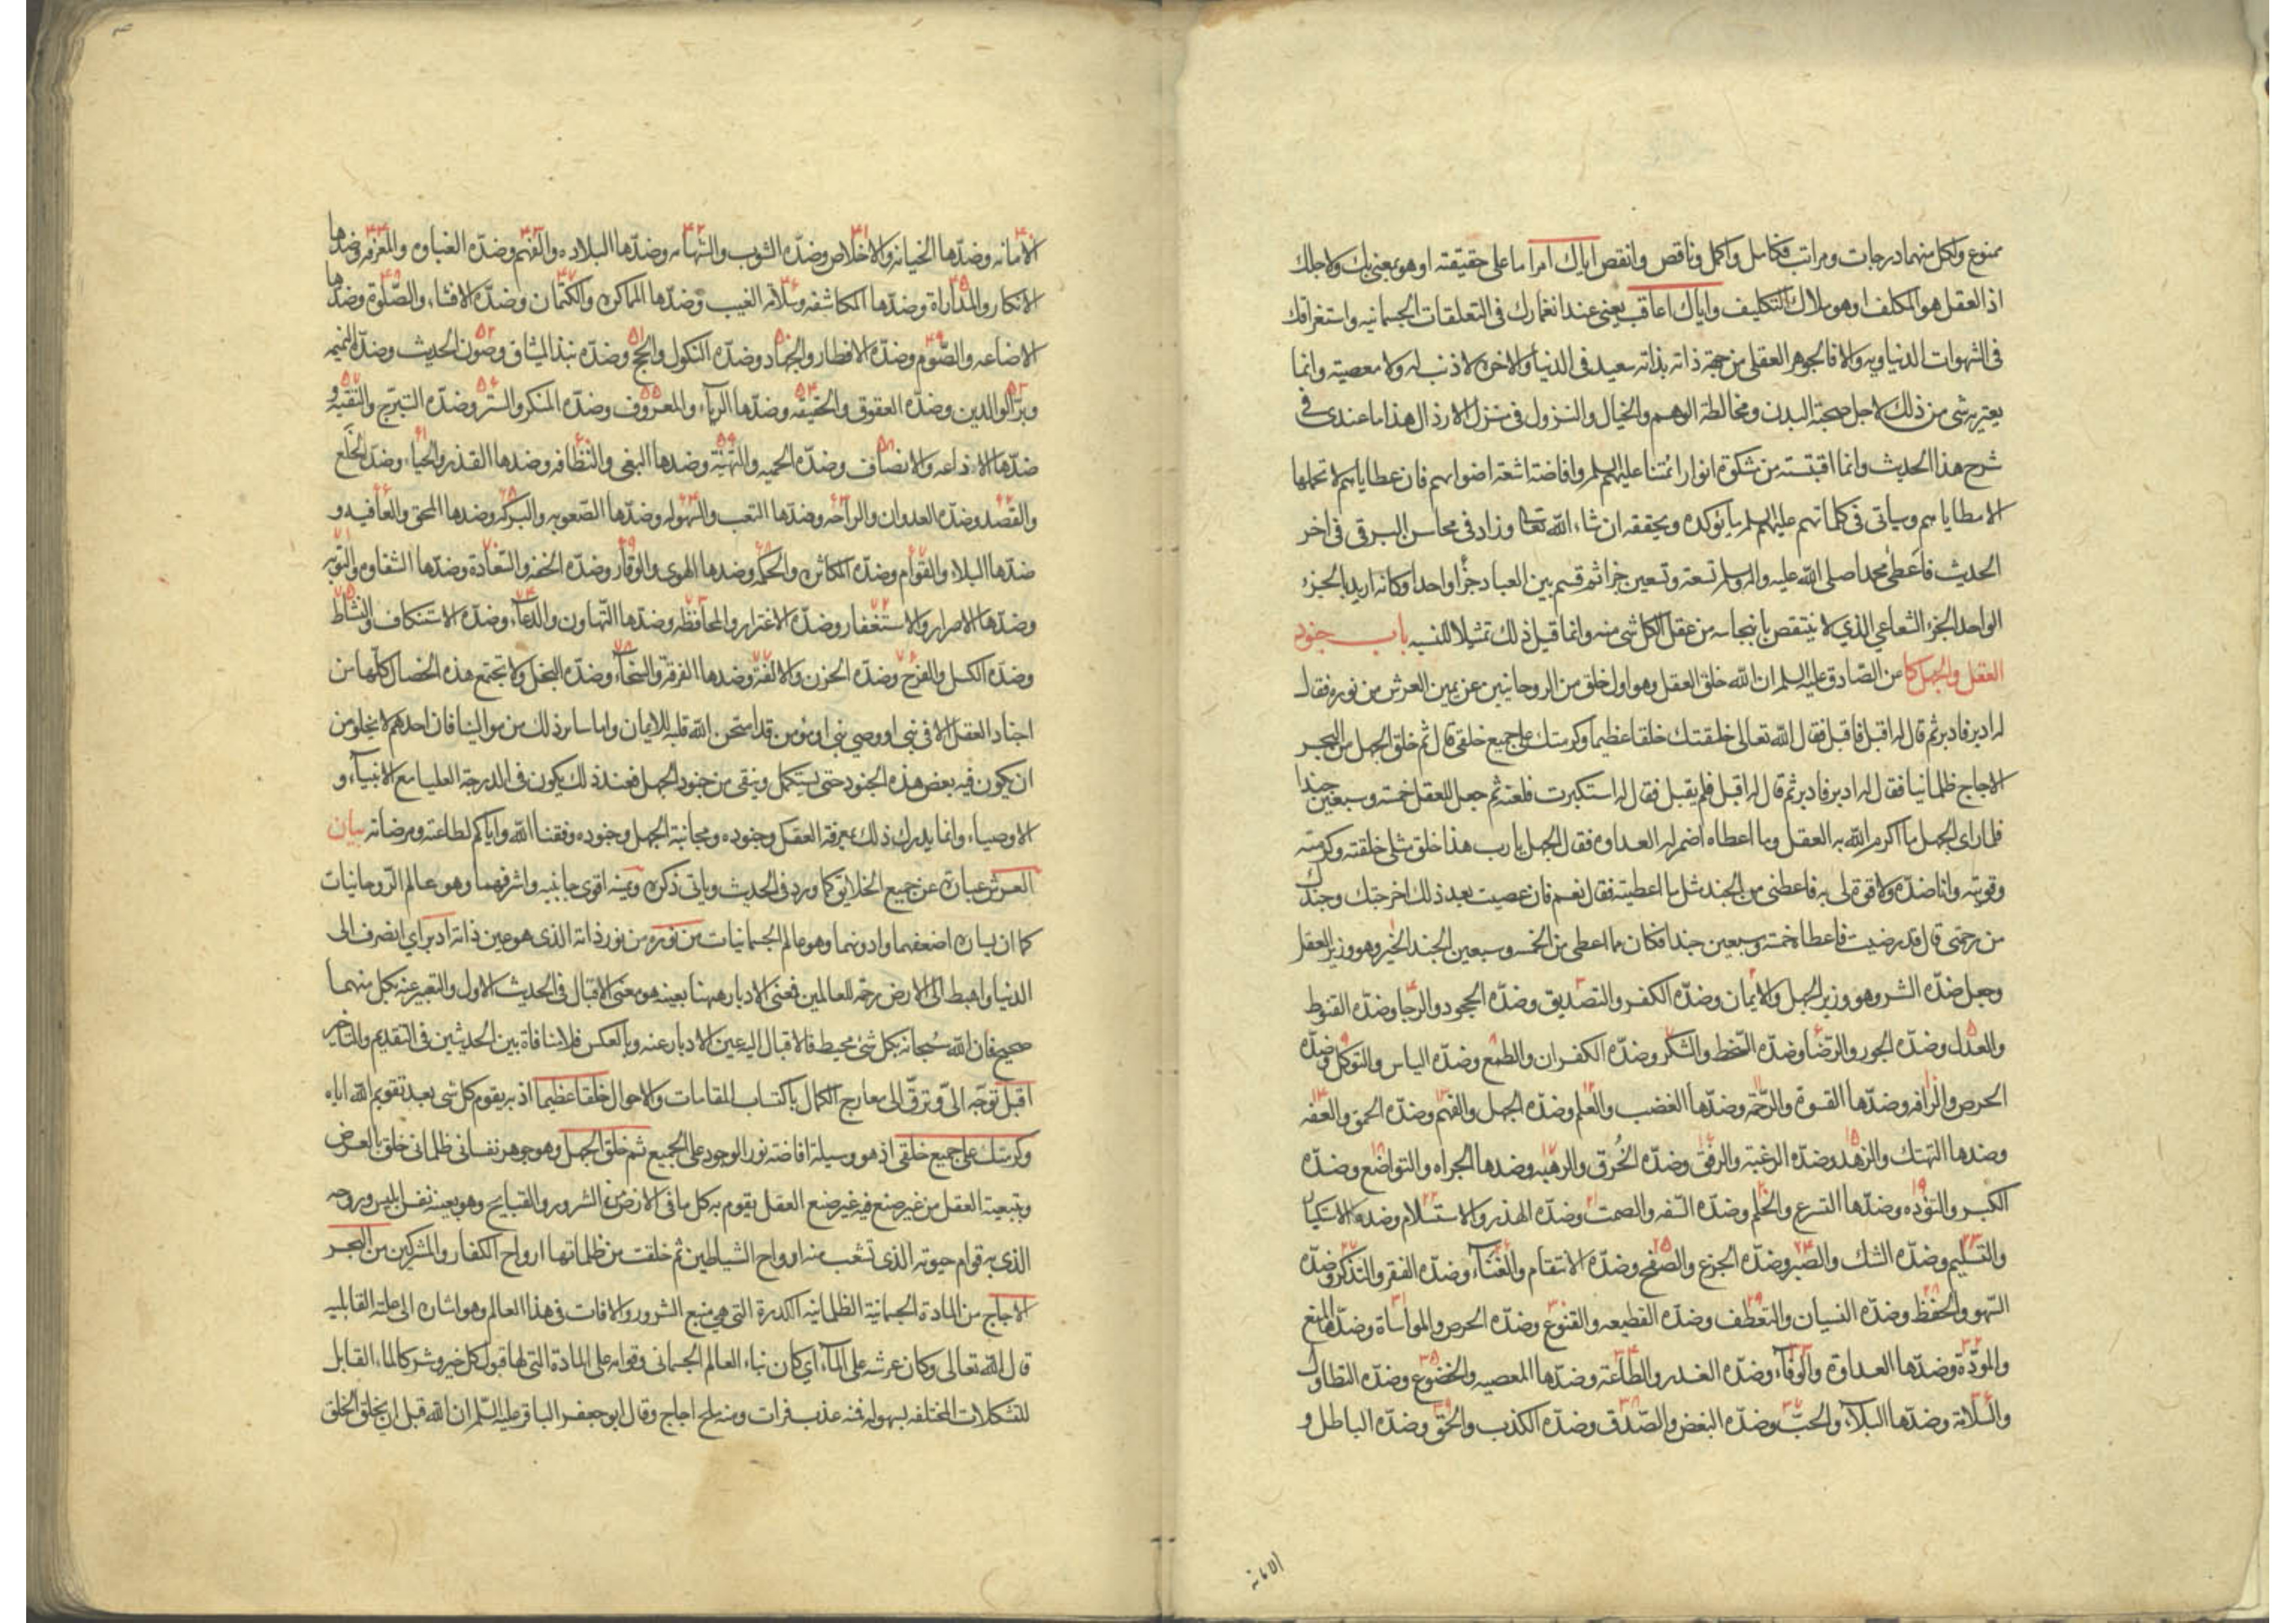 ممنوع ولكل منهما درجات ومراتب فكامل واكمل وناقص وانقص اياك امرا ما على حقيقته او هو بمعنى بك ولاجلك
اذ العقل هو المكلف او هو ملاك التكليف واياك اعاقب يعنى عند انغمارك فى التعلقات الجسمانيه واستغراقك
فى الشهوات الدنياويه والا فالجوهر العقلى من جهة ذاته بذاته سعيد فى الدنيا والاخرة لا ذنب له ولا معصية وانما
يعتريه شى من ذلك لاجل صحبة البدن ومخالطة الوهم والخيال والنزول فى منزل الارذال هذا ما عندى فى
شرح هذا الحديث وانما اقتبسته من مشكوة انوار ائمتنا عليهم السلم وافاضة اشعة اضوائهم فان عطاياهم لا تحملها
الا مطاياهم وسياتى فى كلماتهم عليهم السلم ما يؤكده ويحققه ان شاء الله تعالى وزاد فى محاسن البرقى فى اخر
الحديث فاعطى محمدا صلى الله عليه واله وسلم تسعة وتسعين جزا ثم قسم بين العباد جزأ واحدا وكانه اريد بالجزء
الواحد الجزء الشعاعى الذي لا ينتقص بانبجاسه من عقل الكل شى منه وانما قيل ذلك تمثيلا للنسبه باب جنود
العقل والجهل كا عن الصادق عليه السلم ان الله خلق العقل وهو اول خلق من الروحانيين عن يمين العرش من نوره فقال
له ادبر فادبر ثم قال له اقبل فاقبل فقال الله تعالى خلقتك خلقا عظيما وكرمتك على جميع خلقى قال ثم خلق الجهل من البحر
الاجاج ظلمانيا فقال له ادبر فادبر ثم قال له اقبل فلم يقبل فقال له استكبرت فلعنه ثم جعل للعقل خمسة وسبعين جندا
فلما راى الجهل ما اكرم الله به العقل وما اعطاه اضمر له العداوه فقال الجهل يا رب هذا خلق مثلى خلقته وكرمته
وقويته وانا ضده ولا قوة لى به فاعطنى من الجند مثل ما اعطيته فقال نعم فان عصيت بعد ذلك اخرجتك وجندك
من رحمتى قال قد رضيت فاعطاه خمسة وسبعين جندا فكان مما اعطى من الخمسه وسبعين الجند الخير وهو وزير العقل
وجعل ضده الشر وهو وزير الجهل والايمان وضده الكفر والتصديق وضده الجحود والرجا وضده القنوط
والعدل وضده الجور والرضا وضده السخط والشكر وضده الكفران والطمع وضده الياس والتوكل وضده
الحرص والرافه وضدها القسوة والرحمة وضدها الغضب والعلم وضده الجهل والفهم وضده الحمق والعفه
وضدها التهتك والزهد وضده الرغبة والرفق وضده الخُرق والرهبه وضدها الجراه والتواضع وضده
الكبر والتؤده وضدها التسرع والحلم وضده السفه والصمت وضده الهذر والاستسلام وضده الاستكبار
والتسليم وضده الشك والصبر وضده الجزع والصفح وضده الانتقام والغناء وضده الفقر والتذكر وضده
السهو والحفظ وضده النسيان والتعطف وضده القطيعه والقنوع وضده الحرص والمواساة وضدها المنع
والمودة وضدها العداوة والوفاء وضده الغدر والطاعة وضدها المعصيه والخضوع وضده التطاول
والسلامة وضدها البلاء والحبّ وضده البغض والصدق وضده الكذب والحق وضده الباطل و
الامانه
الامانه وضدها الخيانه والاخلاص وضده الشوب والشهامه وضدها البلاده والفهم وضده الغباوه والمعرفه وضدها
الانكار والمداراة وضدها المكاشفه وسلامة الغيب وضدها المماكره والكتمان وضده الافشاء والصلوة وضدها
الاضاعه والصوم وضده الافطار والجهاد وضده النكول والحج وضده نبذ الميثاق وصون الحديث وضده النميمه
وبر الوالدين وضده العقوق والحقيقه وضدها الرياء والمعروف وضده المنكر والستر وضده التبرج والتقيه و
ضدها الاذاعه والانصاف وضده الحميه والتهيئة وضدها البغى والنظافه وضدها القذر والحياء وضده الخلع
والقصد وضده العدوان والراحه وضدها التعب والسهوله وضدها الصعوبه والبركه وضدها المحق والعافيه و
ضدها البلاء والقوام وضده المكاثره والحكمه وضدها الهوى والوقار وضده الخفه والسعادة وضدها الشقاوه والتوبه
وضدها الاصرار والاستغفار وضده الاغترار والمحافظه وضدها التهاون والدعاء وضده الاستنكاف والنشاط
وضده الكسل والفرح وضده الحزن والالفة وضدها الفرقة والسخاء وضده البخل ولا تجتمع هذه الخصال كلها من
اجناد العقل الا فى نبى او وصى نبى او مؤمن قد امتحن الله قلبه للايمان واما سائر ذلك من موالينا فان احدهم لا يخلو من
ان يكون فيه بعض هذه الجنود حتى يستكمل وينقى من جنود الجهل فعند ذلك يكون فى الدرجة العليا مع الانبياء و
الاوصياء وانما يدرك ذلك بمعرفة العقل وجنوده ومجانبة الجهل وجنوده وفقنا الله واياكم لطاعته ومرضاته بيان
العرش عبارة عن جميع الخلائق كما ورد فى الحديث وياتى ذكره ويمينه اقوى جانبيه واشرفهما وهو عالم الروحانيات
كما ان يساره اضعفهما وادونهما وهو عالم الجسمانيات من نوره من نور ذاته الذى هو عين ذاته ادبر اي انصرف الى
الدنيا واهبط الى الارض رحمة للعالمين فمعنى الادبار ههنا بعينه هو معنى الاقبال فى الحديث الاول والتعبير عنه بكل منهما
صحيح فان الله سبحانه بكل شئ محيط فالاقبال اليه عين الادبار عنه وبالعكس فلا منافاة بين الحديثين فى التقديم والتاخير
اقبل توجّه الىّ وترقّ الى معارج الكمال باكتساب المقامات والاحوال خلقا عظيما اذ به يقوم كل شى بعد تقويم الله اياه
وكرمتك على جميع خلقى اذ هو وسيلة افاضة نور الوجود على الجميع ثم خلق الجهل وهو جوهر نفسانى ظلمانى خلق بالعرض
وبتبعية العقل من غير صنع فيه غير صنع العقل يقوم به كل ما فى الارض من الشرور والقبايح وهو بعينه نفس ابليس وروحه
الذى به قوام حيوته الذى تشعب منه ارواح الشياطين ثم خلقت من ظلماتها ارواح الكفار والمشركين من البحر
الاجاج من المادة الجسمانية الظلمانيه الكدرة التى هى منبع الشرور والافات فى هذا العالم وهو اشارة الى علته القابليه
قال الله تعالى وكان عرشه على الماء اي كان بناء العالم الجسمانى وقوامه على المادة التى لها قبول كل خير وشر كالماء القابل
للتشكلات المختلفه بسهوله فمنه عذب فرات ومنه ملح اجاج وقال ابو جعفر الباقر عليه السلم ان الله قبل ان يخلق الخلق